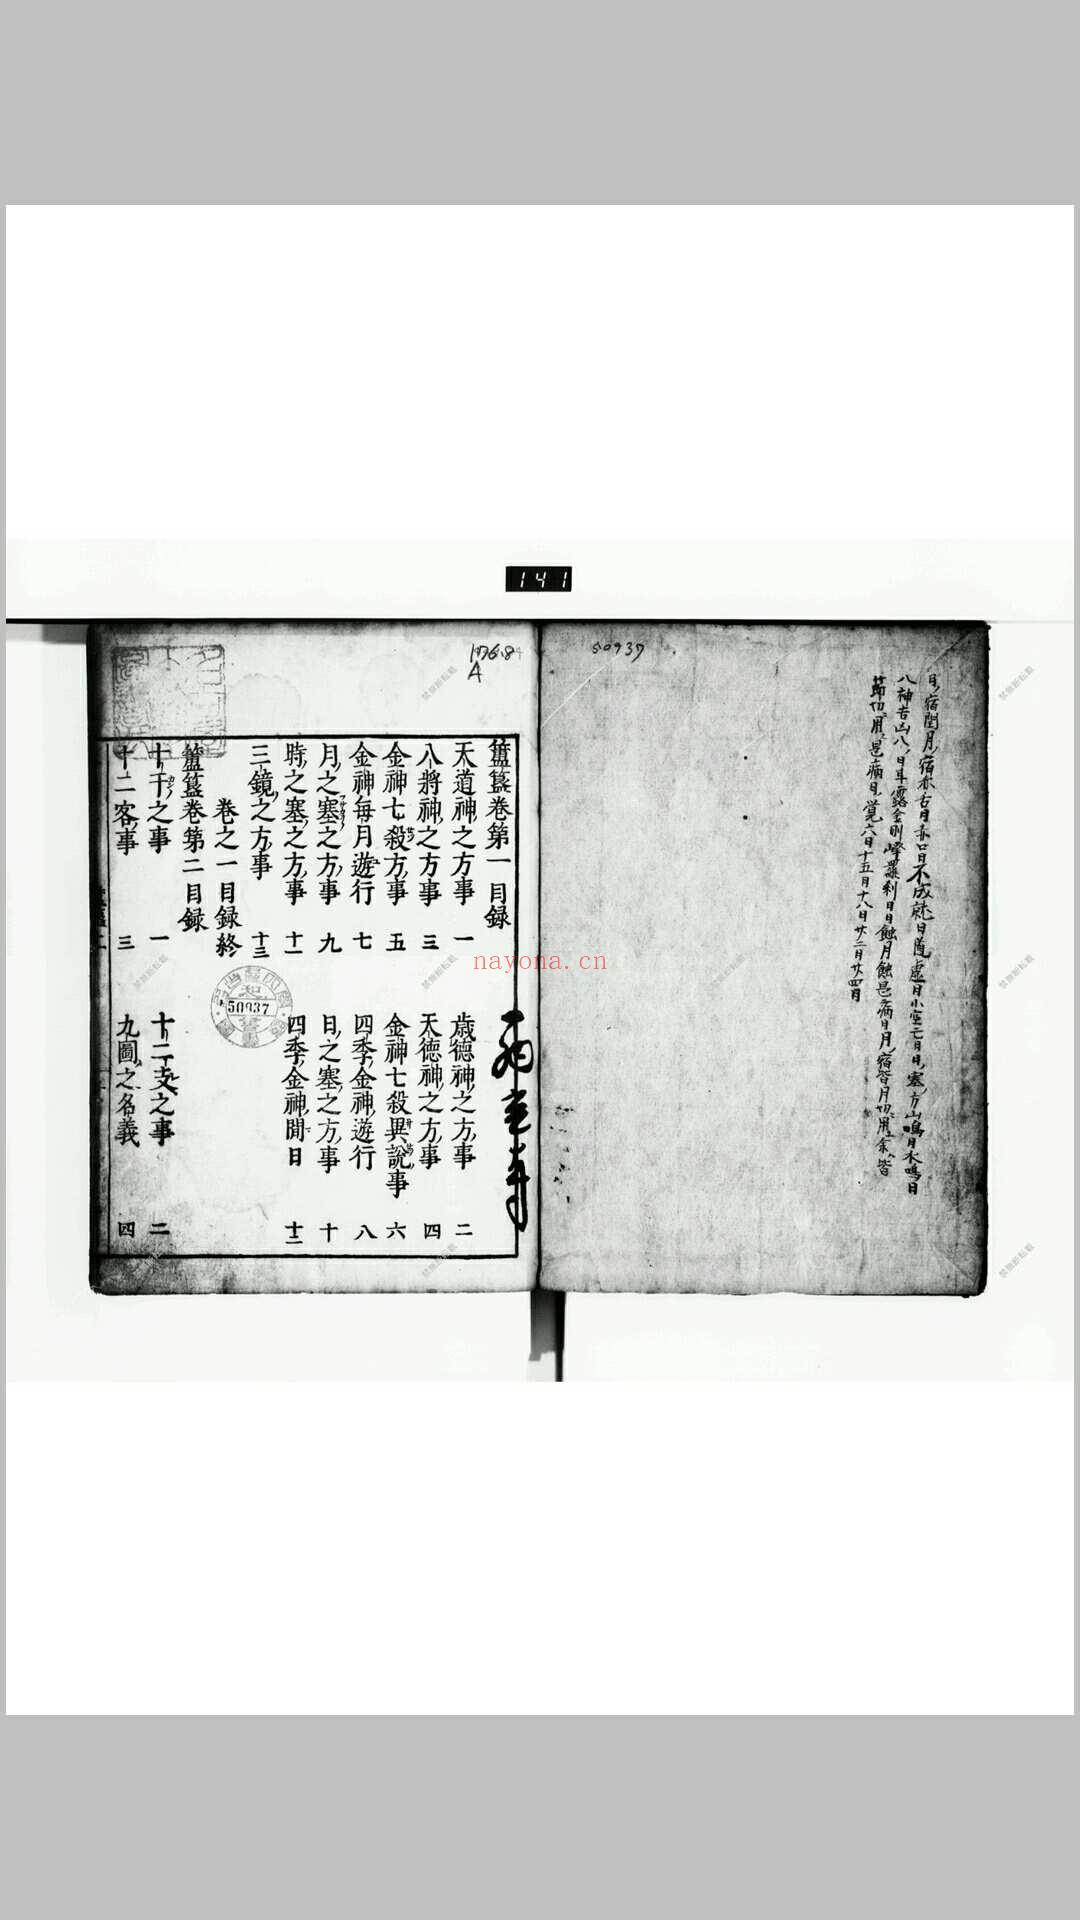 141
50937
1768
A
八神吉凶八日耳露金剛峰羅刹日日蝕月蝕是病日月宿皆月切用余皆
節切用是病日覚六日十五月十八日廿二日廿四日
簠簋巻第一目録
天道神之方事 一
歳徳神之方事 二
八將神之方事 三
天徳神之方事 四
金神七殺方事 五
金神七殺異說事 六
金神每月遊行 七
四季金神遊行 八
月之塞之方事 九
日之塞之方事 十
時之塞之方事 十一
四季金神間日 十二
三鏡之方事 十三
巻之一目録終
簠簋巻第二目録
十干之事 一
十二支之事 二
十二客事 三
九圖之名義 四
50937
nayona.cn
禁無断転載